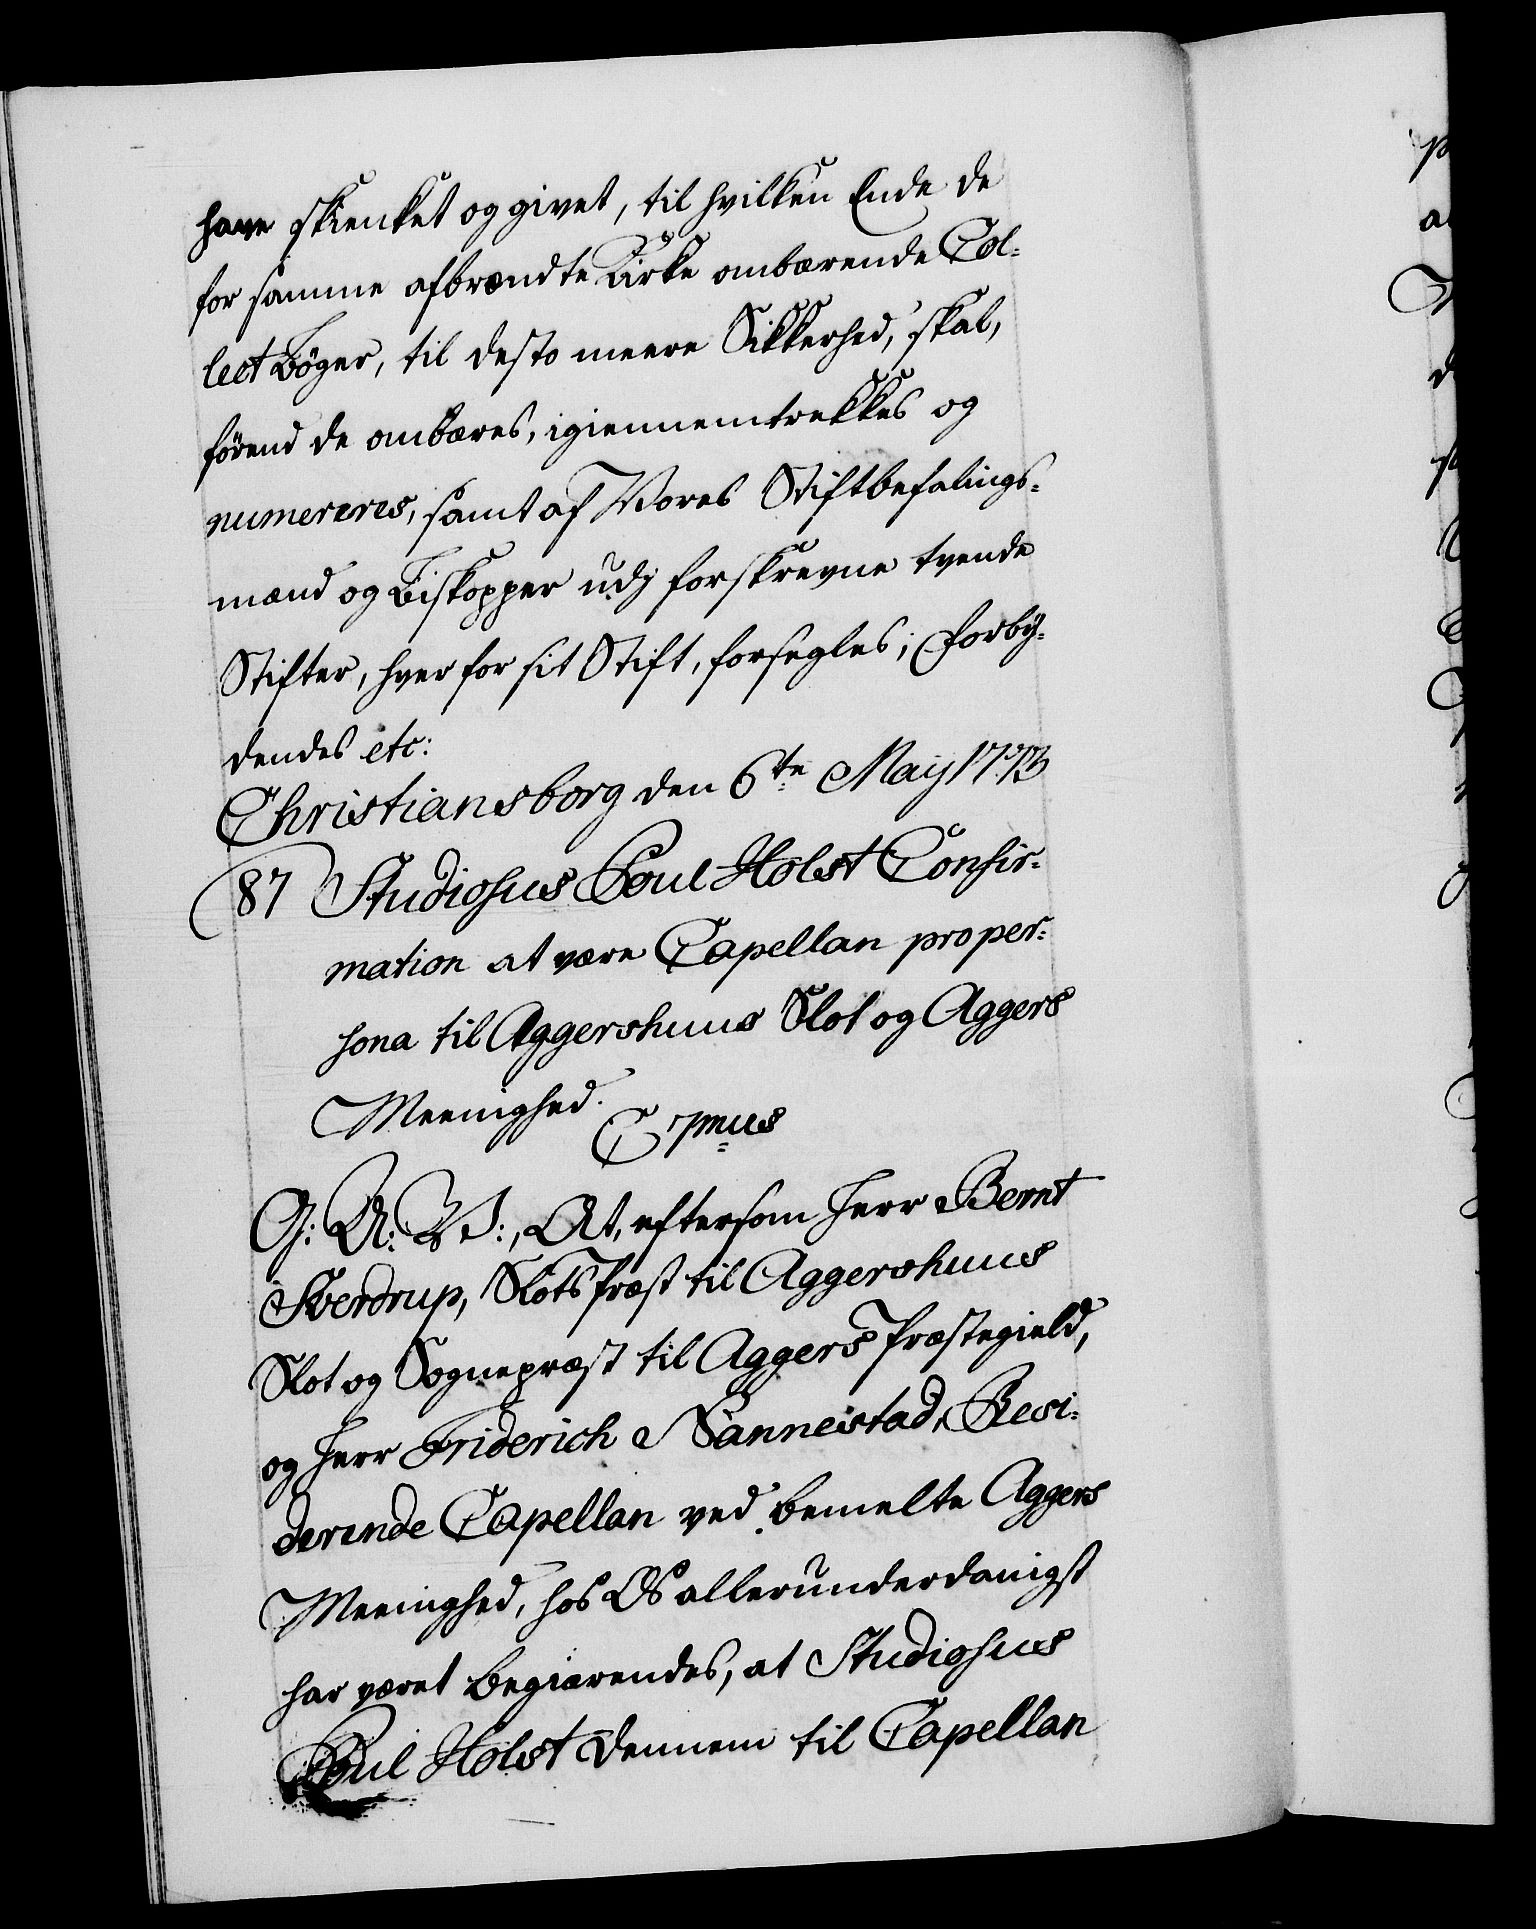 have skienket og givet, til hvilken Ende de
for samme afbrændte Kirke ombærende Col-
lect Bøger, til desto meere Sikkerhed, skal,
førend de ombæres, igiennemtrekkes og
numereres, samt af Vores Stiftbefalings-
mænd og Biskopper udj forskrevne tvende
Stifter, hver for sit Stift, forsegles; Forby-
dendes etc:
Christiansborg den 6te May 1773
87 Studiosus Poul Holst Confir-
mation at være Capellan pro per-
sona til Aggershuus Slot og Aggers
Meenighed.
C 7mus
G: A: V:, At, eftersom Herr Bernt
Sverdrup, Slots Præst til Aggershuus
Slot og Sognepræst til Aggers Præstegield,
og Herr Friderich Nannestad, Resi-
derende Capellan ved bemelte Aggers
Meenighed, hos Os allerunderdanigst
har været begiærendes, at Studiosus
Poul Holst dennem til Capellan